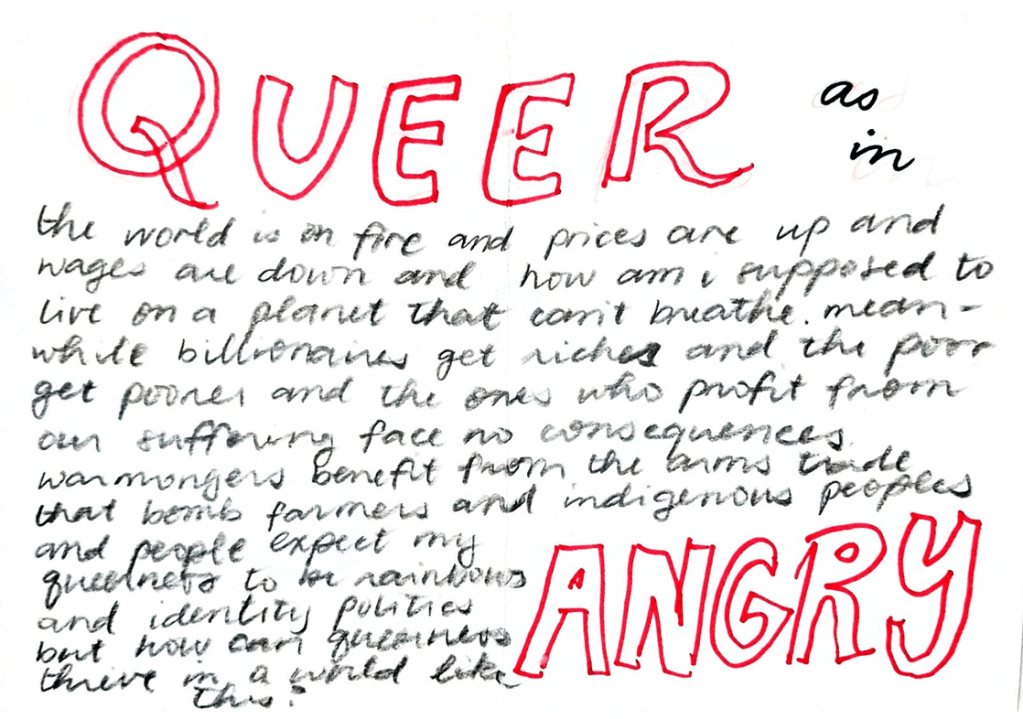 QUEER as
in
the world is on fire and prices are up and
wages are down and how am i supposed to
live on a planet that can't breathe. mean-
while billionaires get richer and the poor
get poorer and the ones who profit from
our suffering face no consequences.
warmongers benefit from the arms trade
that bomb farmers and indigenous peoples
and people expect my
queerness to be rainbows
and identity politics
but how can queerness
thrive in a world like
this?
ANGRY